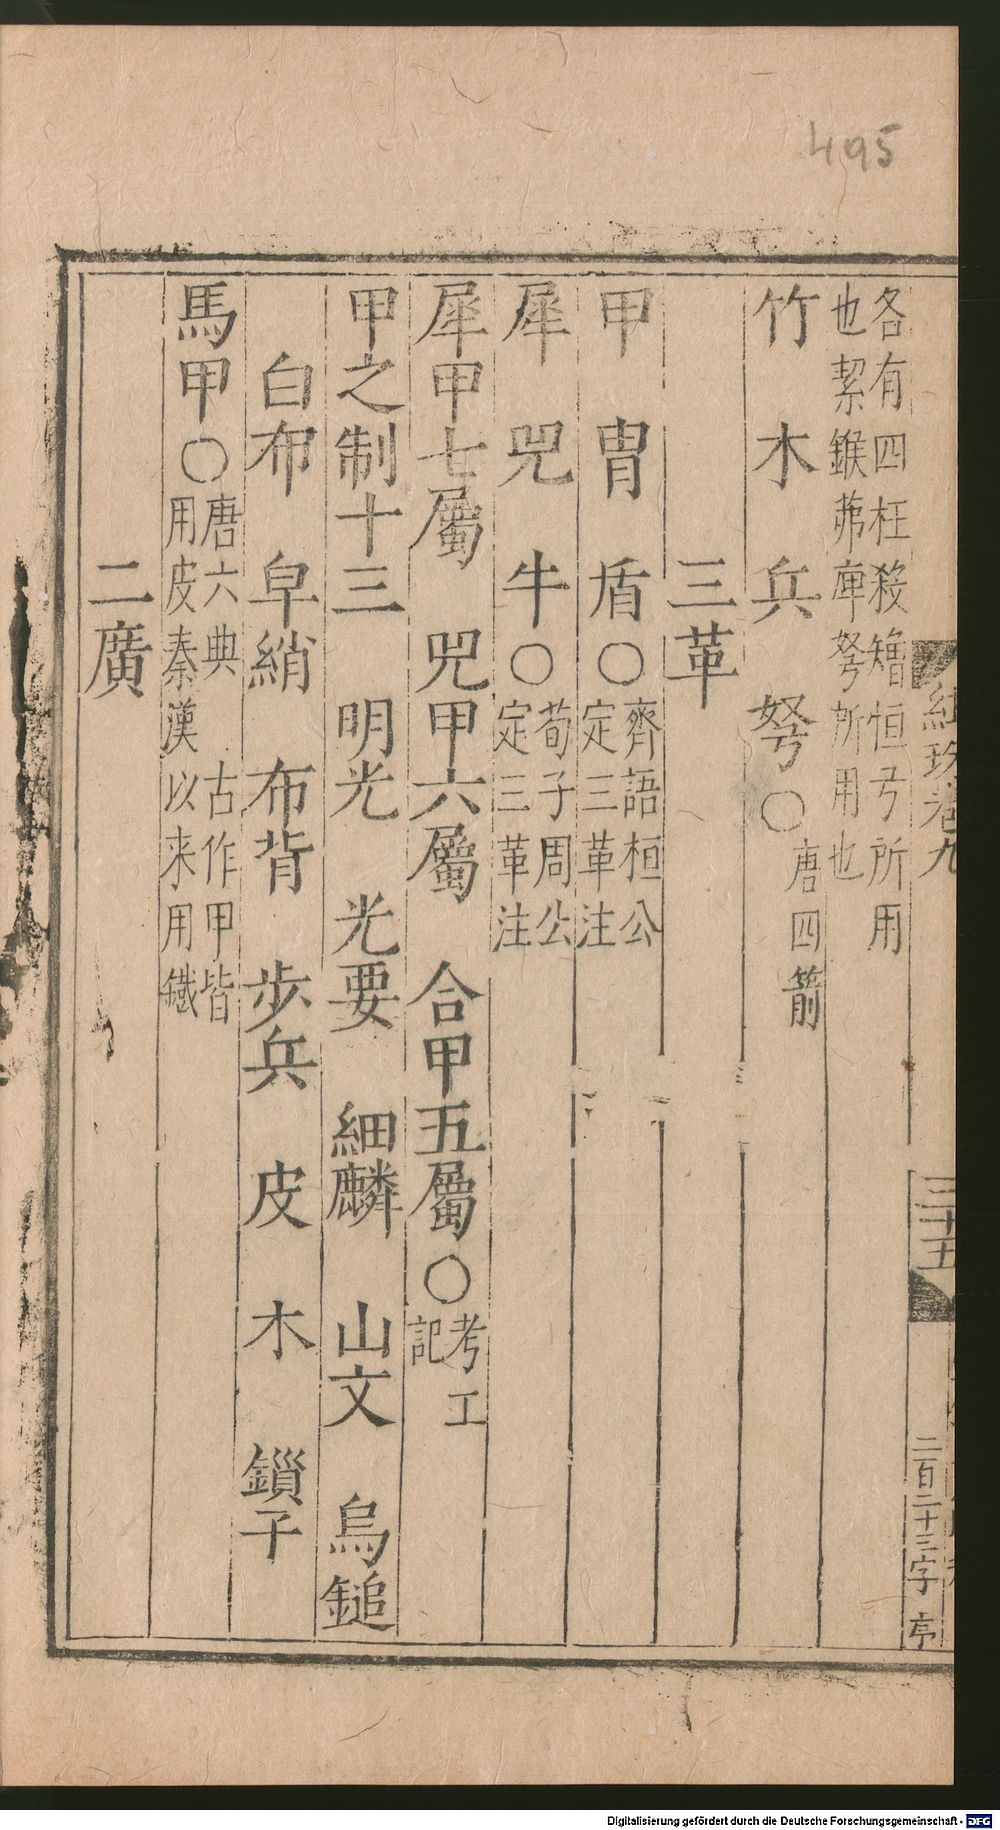 495
紺珠卷九
三十五
二百二十三字 亭
各有四枉殺矰恒弓所用
也絜鍭茀庳弩所用也
竹 木 兵 弩○唐四箭
三革
甲 冑 盾○齊語桓公
定三革注
犀 兕 牛○荀子周公
定三革注
犀甲七屬 兕甲六屬 合甲五屬○考工
記
甲之制十三 明光 光要 細麟 山文 烏鎚
白布 皁絹 布背 步兵 皮 木 鎖子
馬甲○唐六典 古作甲皆
用皮秦漢以来用鐵
二廣
Digitalisierung gefördert durch die Deutsche Forschungsgemeinschaft - DFG